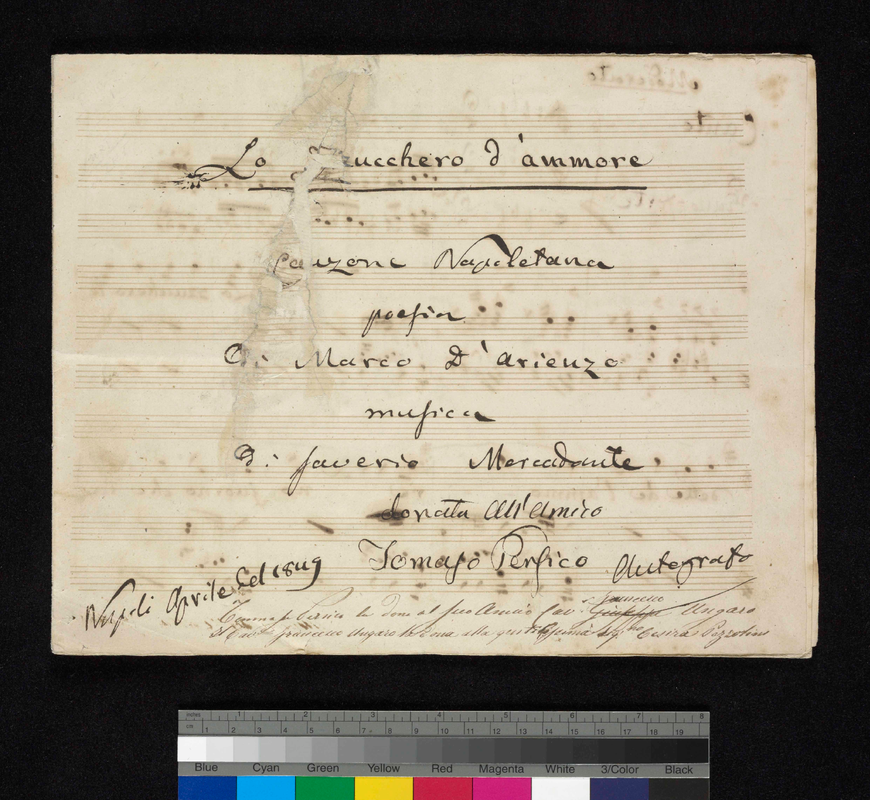 Lo zucchero d'ammore
Canzone Napoletana
poesia
di Marco D'Arienzo
musica
di Saverio Mercadante
donata all'Amico
Tomaso Persico Autografo
Napoli Aprile del 1849
Persico lo dona al suo Amico Cav. Francesco Ungaro
Francesco Ungaro
inches 1 2 3 4 5 6 7 8
cm 1 2 3 4 5 6 7 8 9 10 11 12 13 14 15 16 17 18 19
Blue Cyan Green Yellow Red Magenta White 3/Color Black